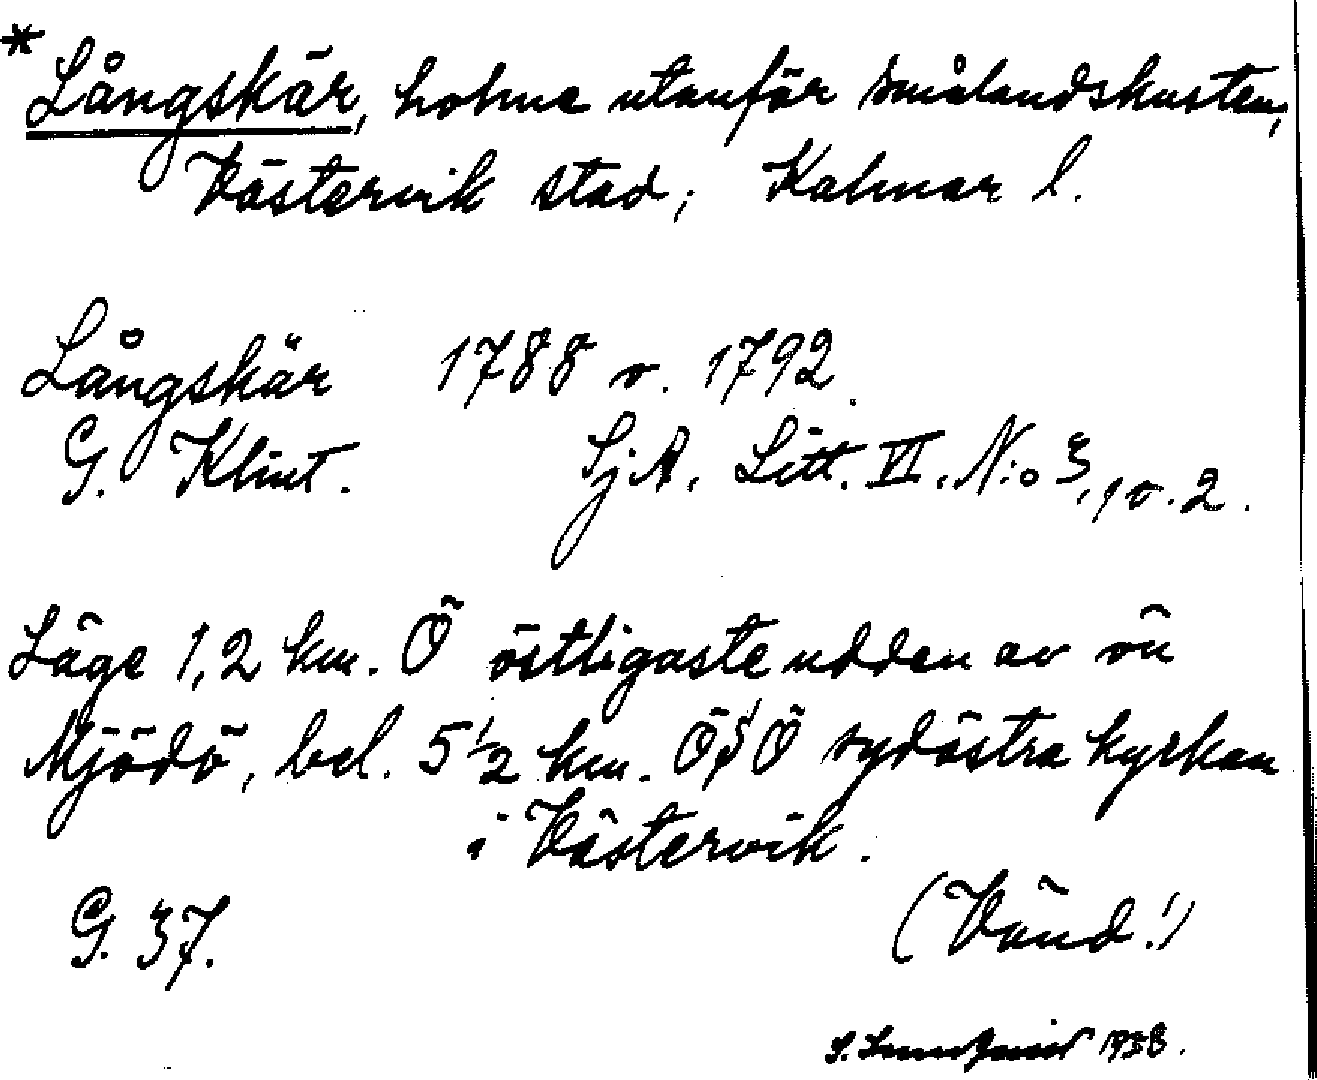 * Långskär, holme utanför Smålandskusten,
Västervik stad; Kalmar l.
Långskär 1788 o. 1792.
G. Klint. SjA. Litt. VI. N:o 3, 1 o. 2.
Läge 1,2 km. Ö östligaste udden av ön
Mjödö, bel. 5 1/2 km. ÖSÖ sydöstra kyrkan
i Västervik.
G. 37. (Vänd!)
S. 1938.